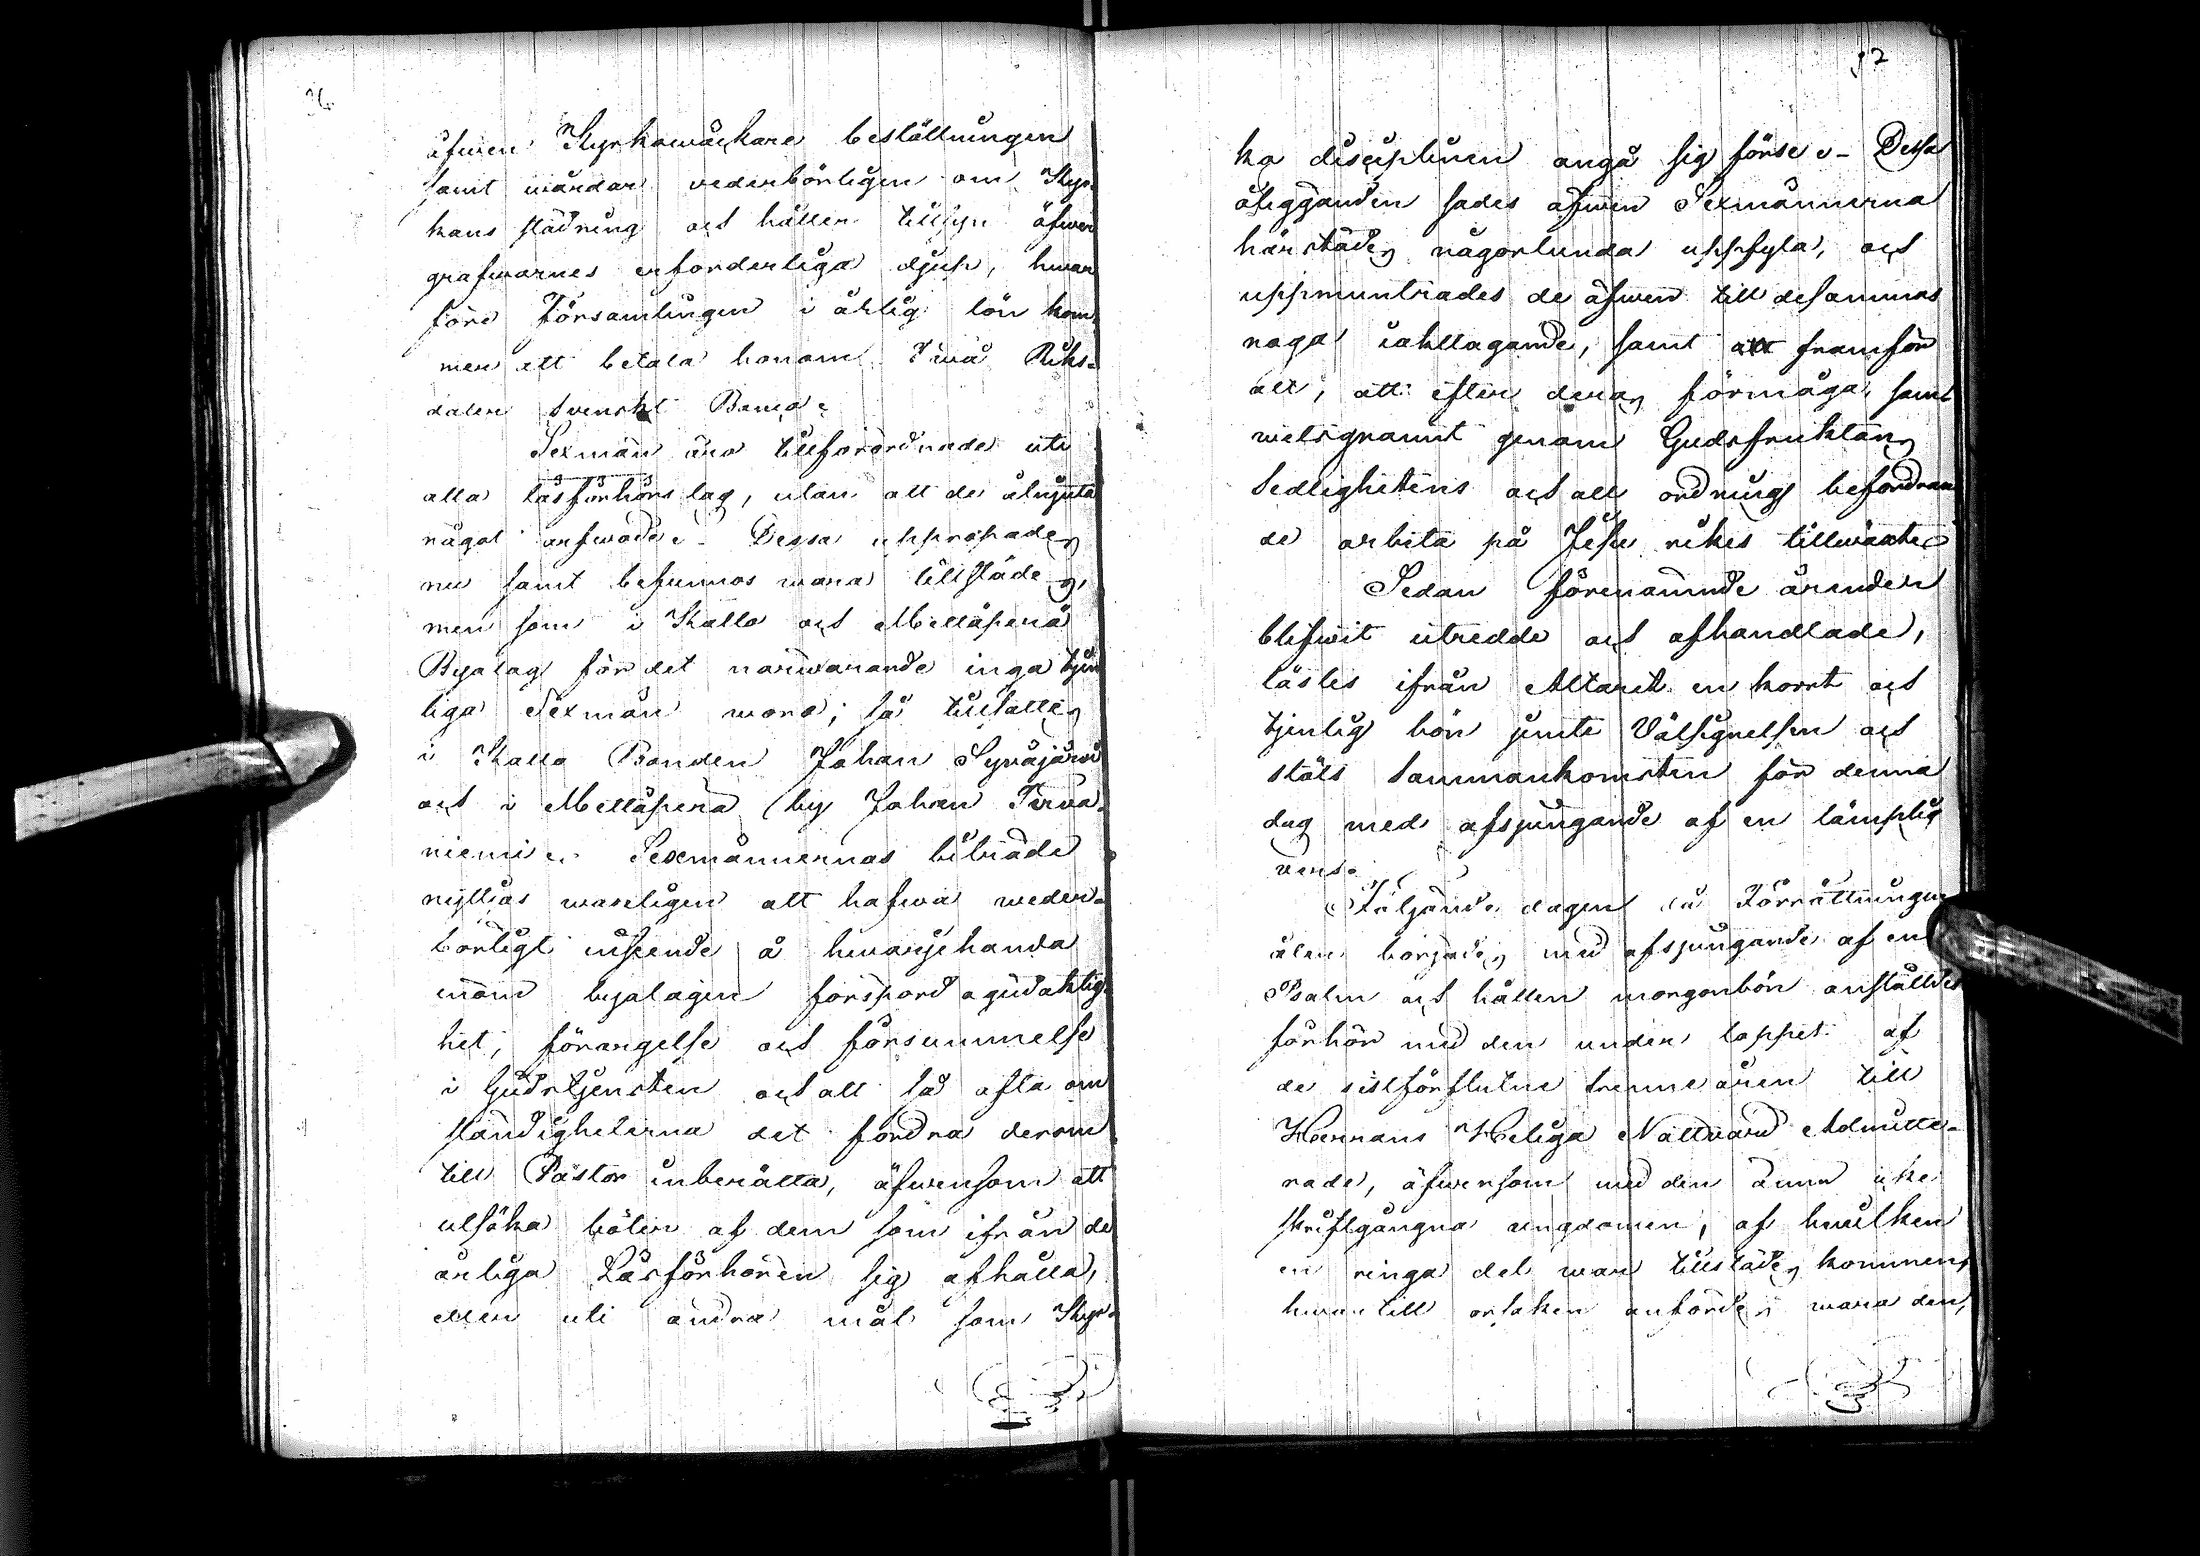 äfwen Kyrkowäckare beställningen
samt wårdar vederbörligen om Kyr-
kans städning och håller tillsyn öfwer
grafwarnes erforderliga djup, hwar
före Församlingen i årlig lön kom-
mer att betala honom Twå Riks-
daler Svenskt Banco.
Sexmän äro tillförordnade uti
alla läsförhörs lag, utan att de åtnjuta
något arfwode. Dessa uppropades
nu samt befunnos wara tillstädes,
men som i Kallo och Mellajenä
Byalag för det närwarande inga tjen
liga Sexmän woro; så tillsattes
i Kallo Bonden Johan Syväjärvi
och i Mellajenä by Johan Tervo-
niemi. Sexmännernas biträde
nyttjas warligen att hafwa weder-
börligt inseende å hwarjehanda
inom byalagen förspord ogudaktig-
het, förargelse och försummelse
i Gudstjensten och all så ofta om
ständigheterna det fordra derom
till Pastor inberätta, äfwensom att
utsöka böter af dem som ifrån de
årliga Läsförhören sig afhålla,
eller uti andra mål som Kyr-
97
ka disciplinen angå sig förse. Dessa
åligganden sades äfwen Sexmännerna
härstädes någorlunda uppfyla, och
uppmuntrades de äfwen till desammas
noga iakttagande, samt att framför
allt, att efter deras förmåga samt
welsignamt genom Gudsfruktans
Sedlighetens och all ordnings befordran
de arbeta på Jesu rikes tillwäxt
Sedan förenämnde ärenden
blifwit utredde och afhandlade,
lästes ifrån Altaret en kort och
tjenlig bön jemte Välsignelsen och
slöts sammankomsten för denna
dag med afsjungande af en lämplig
vers.
Följande dagen då Förrättningen
åter börjades med afsjungande af en
Psalm och hållen morgonbön anställdes
förhör med den under loppet af
de sistförflutne trenne åren till
Herrans Heliga Nattvard Admitte-
rade, äfwensom med den ännu icke
skriftgångna ungdomen, af hwilken
en ringa del war tillstädes kommen,
hwartill orsaken anfördes wara den,